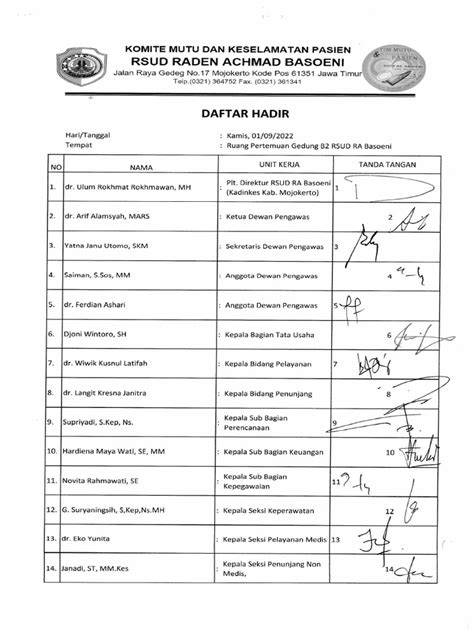 KOMITE MUTU DAN KESELAMATAN PASIEN
RSUD RADEN ACHMAD BASOENI
Jalan Raya Gedeg No.17 Mojokerto Kode Pos 61351 Jawa Timur
Telp.(0321) 364752 Fax. (0321) 361341
TIM MUTU
DAFTAR HADIR
Hari/Tanggal : Kamis, 01/09/2022
Tempat : Ruang Pertemuan Gedung B2 RSUD RA Basoeni
NO NAMA UNIT KERJA TANDA TANGAN
1. dr. Ulum Rokhmat Rokhmawan, MH : Plt. Direktur RSUD RA Basoeni 1
(Kadinkes Kab. Mojokerto)
2. dr. Arif Alamsyah, MARS : Ketua Dewan Pengawas 2
3. Yatna Janu Utomo, SKM : Sekretaris Dewan Pengawas 3
4. Saiman, S.Sos, MM : Anggota Dewan Pengawas 4
5. dr. Ferdian Ashari : Anggota Dewan Pengawas 5
6. Djoni Wintoro, SH : Kepala Bagian Tata Usaha 6
7. dr. Wiwik Kusnul Latifah : Kepala Bidang Pelayanan 7
8. dr. Langit Kresna Janitra : Kepala Bidang Penunjang 8
9. Supriyadi, S.Kep, Ns. : Kepala Sub Bagian 9
Perencanaan
10. Hardiena Maya Wati, SE, MM : Kepala Sub Bagian Keuangan 10
11. Novita Rahmawati, SE : Kepala Sub Bagian 11
Kepegawaian
12. G. Suryaningsih, S,Kep,Ns.MH : Kepala Seksi Keperawatan 12
13. dr. Eko Yunita : Kepala Seksi Pelayanan Medis 13
14. Janadi, ST, MM.Kes : Kepala Seksi Penunjang Non 14
Medis,